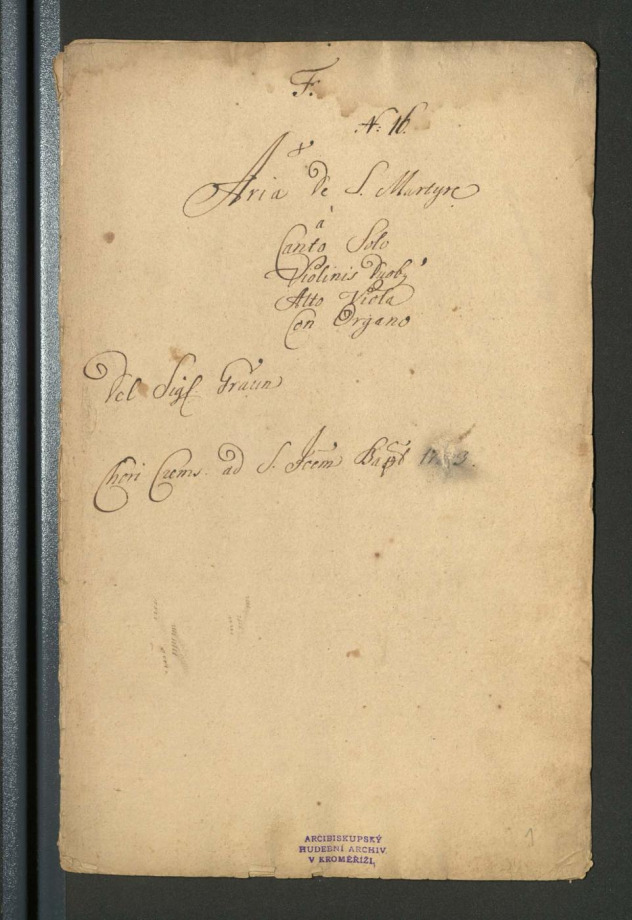 F.
N: 16.
Aria de S. Martyre
à
Canto Solo
Violinis Duobq
Alto Viola
Con Organo
Del Sigl Graun
Chori Crems. ad S. Joem Bapt
ARCIBISKUPSKÝ
HUDEBNÍ ARCHIV
V KROMĚŘÍŽI,
1